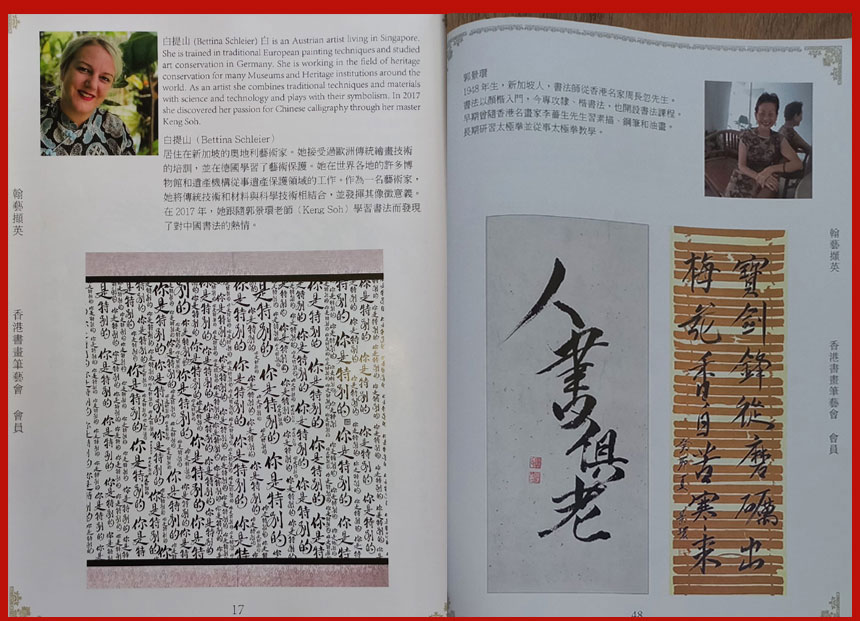 白提山 (Bettina Schleier) 白 is an Austrian artist living in Singapore.
She is trained in traditional European painting techniques and studied
art conservation in Germany. She is working in the field of heritage
conservation for many Museums and Heritage institutions around the
world. As an artist she combines traditional techniques and materials
with science and technology and plays with their symbolism. In 2017
she discovered her passion for Chinese calligraphy through her master
Keng Soh.
白提山 (Bettina Schleier)
居住在新加坡的奧地利藝術家。她接受過歐洲傳統繪畫技術
的培訓，並在德國學習了藝術保護。她在世界各地的許多博
物館和遺產機構從事遺產保護領域的工作。作為一名藝術家，
她將傳統技術和材料與科學技術相結合，並發揮其像徵意義。
在 2017 年，她跟隨郭景環老師（Keng Soh）學習書法而發現
了對中國書法的熱情。
翰藝擷英
香港書畫筆藝會 會員
你是特别的
17
郭景環
1948 年生，新加坡人，書法師從香港名家周長 先生。
書法以顏楷入門，今專攻隸、楷書法，也開設書法課程。
早期曾隨香港名畫家李 生先生習素描、鋼筆和油畫。
長期研習太極拳並從事太極拳教學。
人書俱老
寶劍鋒從磨礪出
梅花香自苦寒來
翰藝擷英
香港書畫筆藝會 會員
48